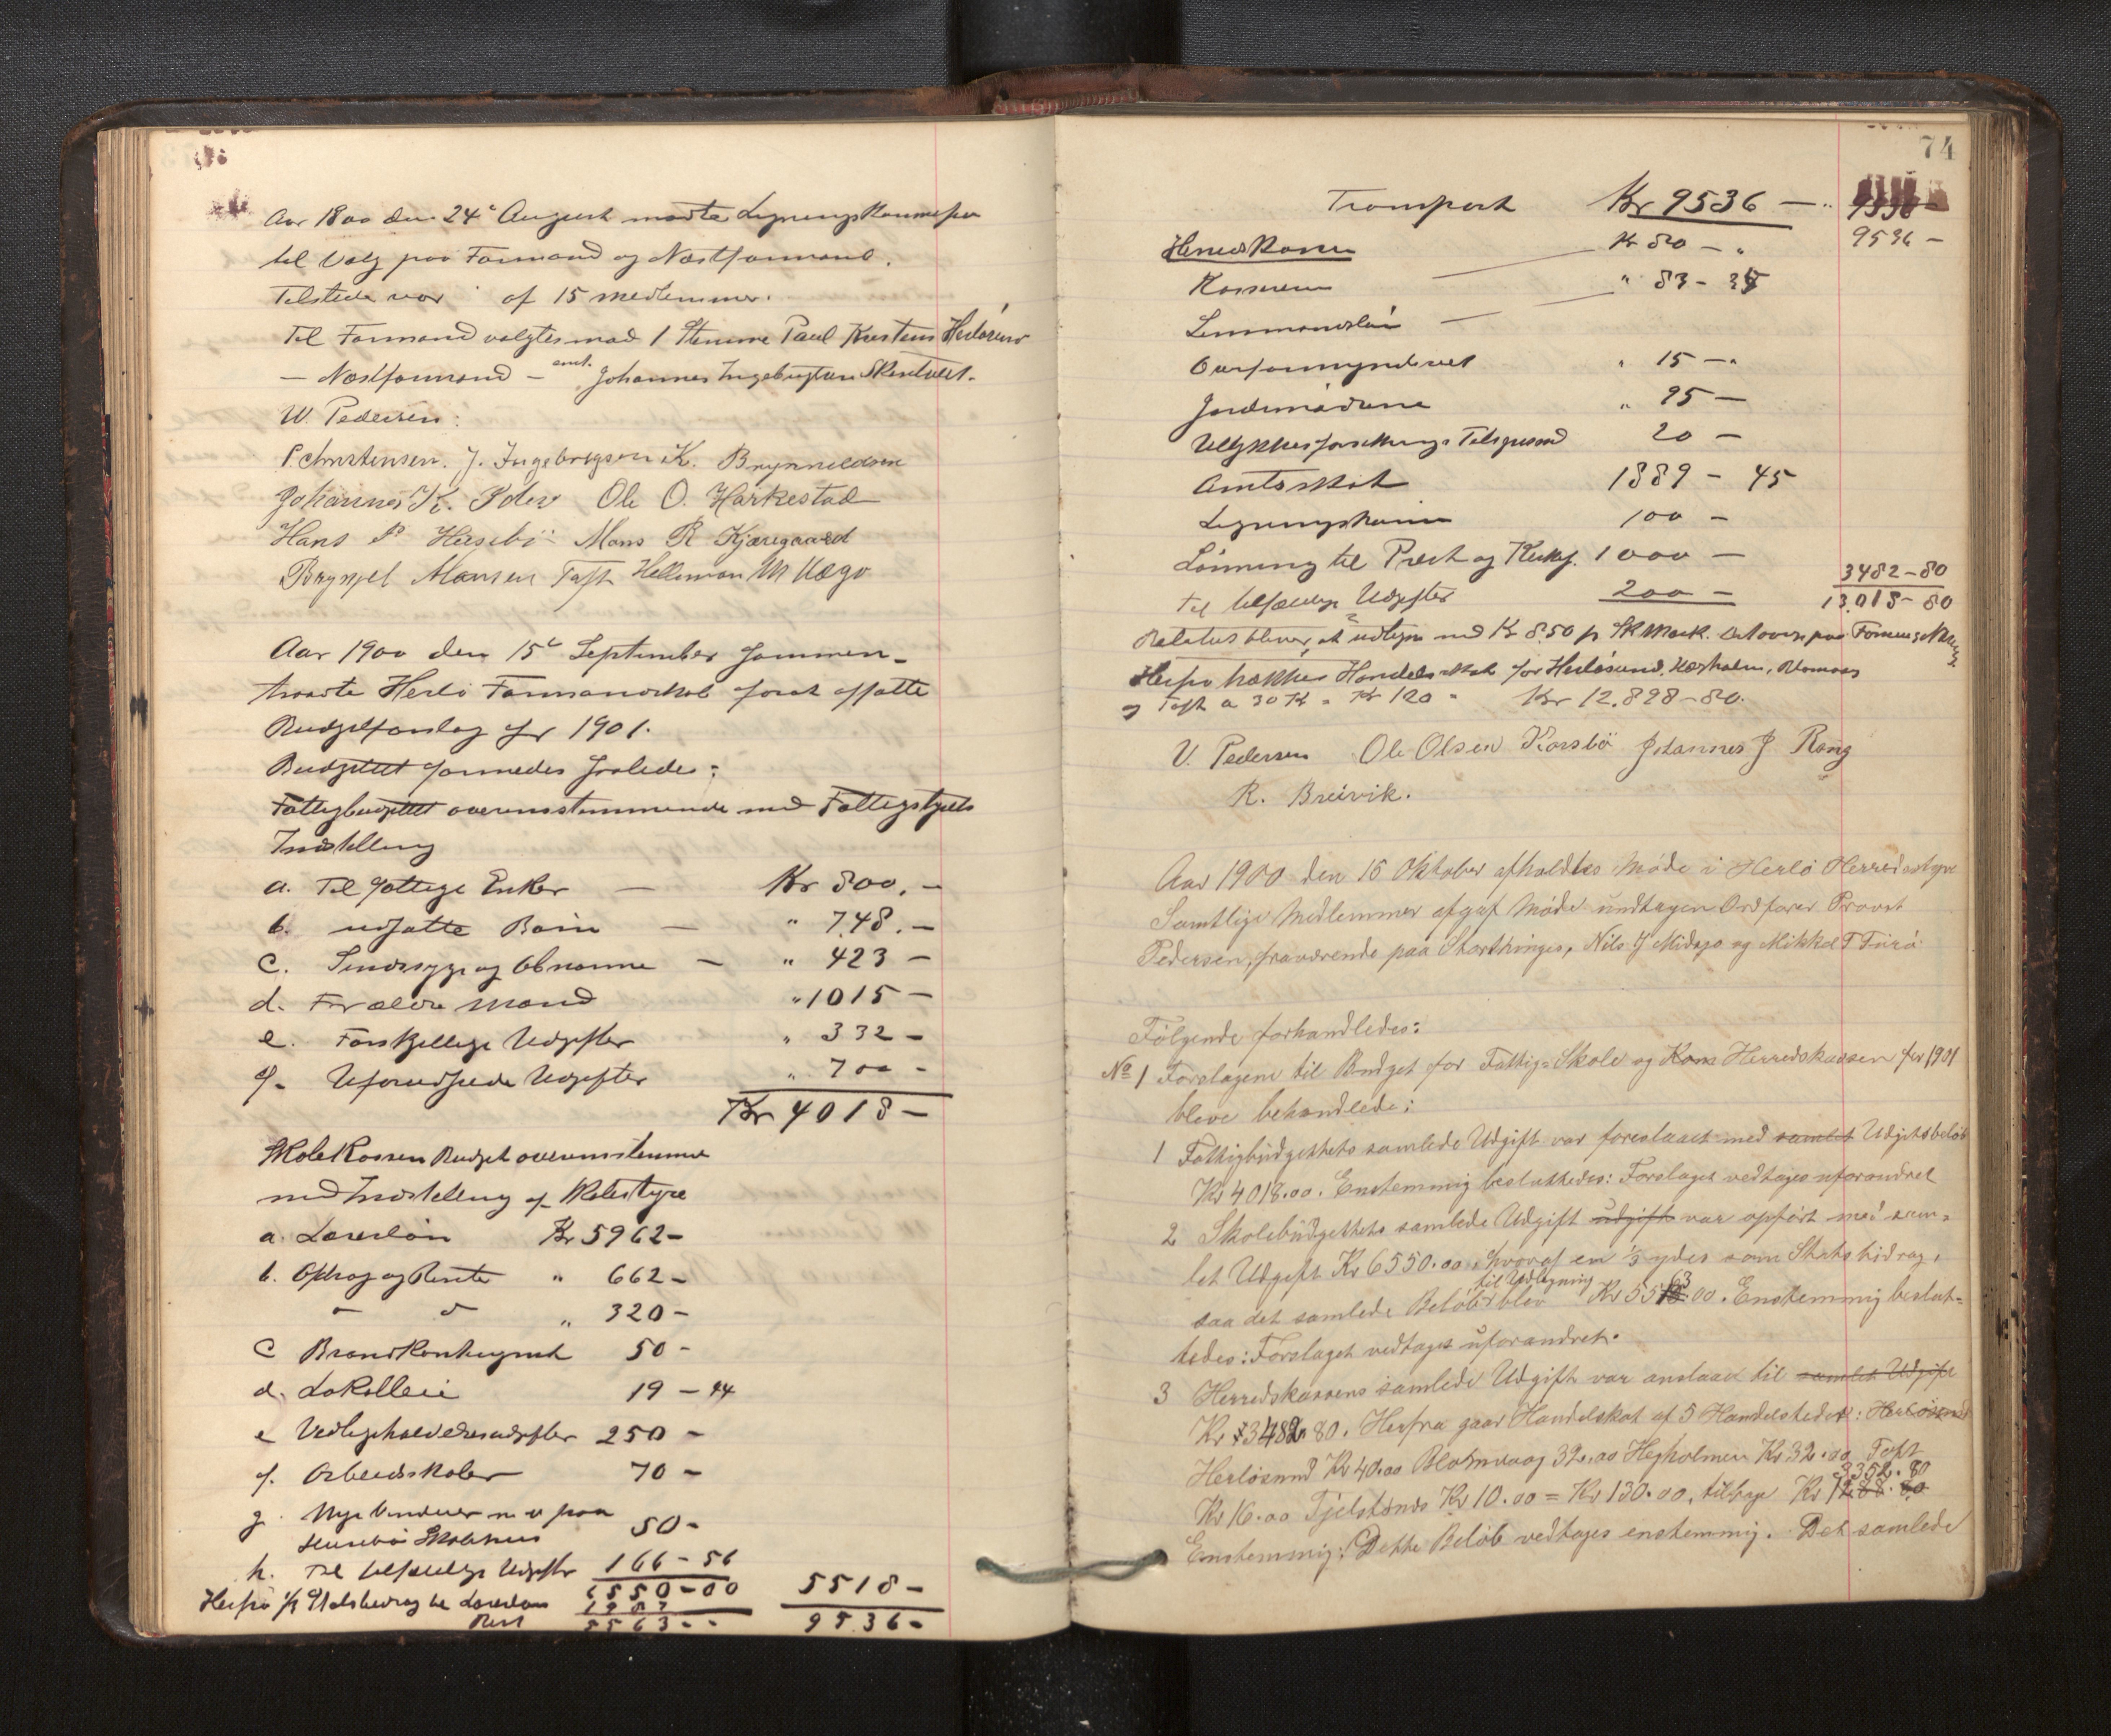 Aar 1800 den 24de August mødte Ligningskommission
til Valg paa Formand og Næstformand.
Tilstede var of 15 medlemmer.
Til Formand valgtes mod 1 Stemme Paul Kristens Herløsund
— Næstformand — enst. Johannes Ingebrigtsen Skintveit.
W. Pedersen:
P. Christensen. J. Ingebrigtsen K. Brynnildsen
Johannes K. Ole O. Harkestad
Hans P Husebø Mons R Kjæregaard
Brynjel Monsen Toft Hellemon M Uægo
Aar 1900 den 15de September sammen-
traadte Herlø Formandskab forat affatte
Budgetforslag for 1901.
Budgettet formedes saaledes:
Fattigbudgettet overensstemmende med Fattigstyrets
Indstilling
a. Til fattige Enker — Kr 800. —
b. udsatte Børn — " 748. —
c. Sindssyge og Abnorme — " 423 —
d. For ældre Mænd " 1015 —
e. Forskjellige Udgifter " 332 —
f. Uforudseede Udgifter " 700 -
Kr 4018 —
Skolekassen Budget overensstemmer
med Indstilling af Skolestyre
a. Lærerløn Kr 5962 -
b. Afdrag og Rente " 662 -
" 320 -
c Brandkontingent 50 -
d. Lokalleie 19 - 44
e Vedligeholdelsesudgifter 250 -
f. Arbeidsskoler 70 -
g. Nye Vinduer m v paa
Husebø Skolehus 50 -
h. Til tilfældige Udgifter 166 - 56
6550 - 00 5518 -
Herfra 1/3 Statsbidrag til Lærerløn 1987
Rest 5563 - - 9536 -
74
Transport Kr 9536 — " 9536 -
9536 -
Herredskassen Kr 80 - "
Kasseren " 83 - 35
Lensmandsløn —
Overformynderiet " 15 - "
Jordemødrene " 95 —
Ulykkesforsikrings Tilsynsmænd 20 —
Amtsskat 1889 - 45
Ligningskomm 100 -
Lønning til Præst og Kirkesg. 1000 —
Til tilfældige Udgifter 200 — 3482 - 80
13,018 - 80
Relatus bliver at udligne med Kr 8.50 pr Skmark.
Herfra trækkes Handelsskat for Herløsund, Hægholm, Blomvaag
og Toft a 30 Kr = Kr 120 " Kr 12.898 - 80.
V. Pedersen Ole Olsen Korsbø Johannes J Rong
R. Breivik.
Aar 1900 den 16 Oktober afholdtes Møde i Herlø Herredsstyre
Samtlige Medlemmer afgaf Møde undtagen Ordfører Provst
Pedersen, fraværende paa Storthinget, Nils J Midsjø og Mikkel T Turø.
Følgende forhandledes:
No 1 Forslagene til Budget for Fattig- Skole og Kom Herredskassen for 1901
bleve behandlede:
1 Fattigbudgettets samlede Udgift var foreslaaet med samlet Udgiftsbeløb
Kr 4018.00. Enstemmig besluttedes: Forslaget vedtages uforandret
2 Skolebudgettets samlede Udgift udgift var opført med sam-
let Udgift Kr 6550.00, hvoraf en 1/3 ydes som Statsbidrag,
saa det samlede Beløb til Udligning blev Kr 5563.00. Enstemmig beslut-
tedes: Forslaget vedtages uforandret.
3 Herredskassens samlede Udgift var anslaaet til samlet Udgift
Kr 3482.80. Herfra gaar Handelskat af 5 Handelsteder: Herløsund
Herløsund Kr 40.00 Blomvaag 32.00 Hegholmen Kr 32.00 Toft
Kr 16.00 Fjelstdnds Kr 10.00 = Kr 130.00, tilbage Kr 1288.80 3352.80
Enstemmig: Dette Beløb vedtages enstemmig. Det samlede